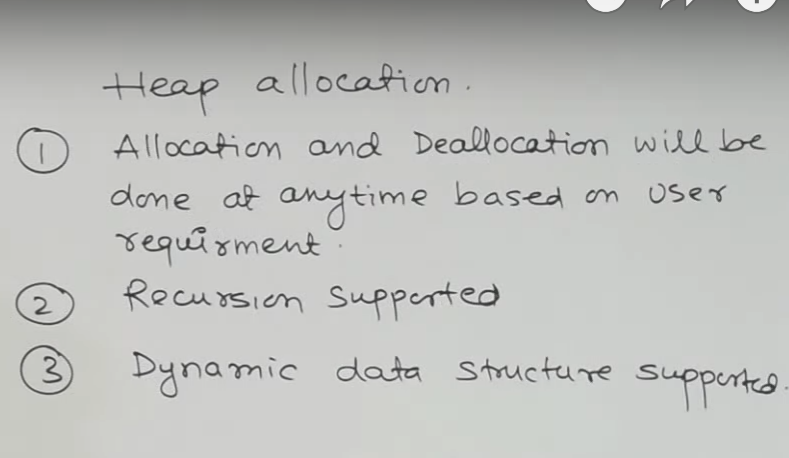 Heap allocation.
① Allocation and Deallocation will be
done at anytime based on user
requirment.
② Recursion supported
③ Dynamic data structure supported.